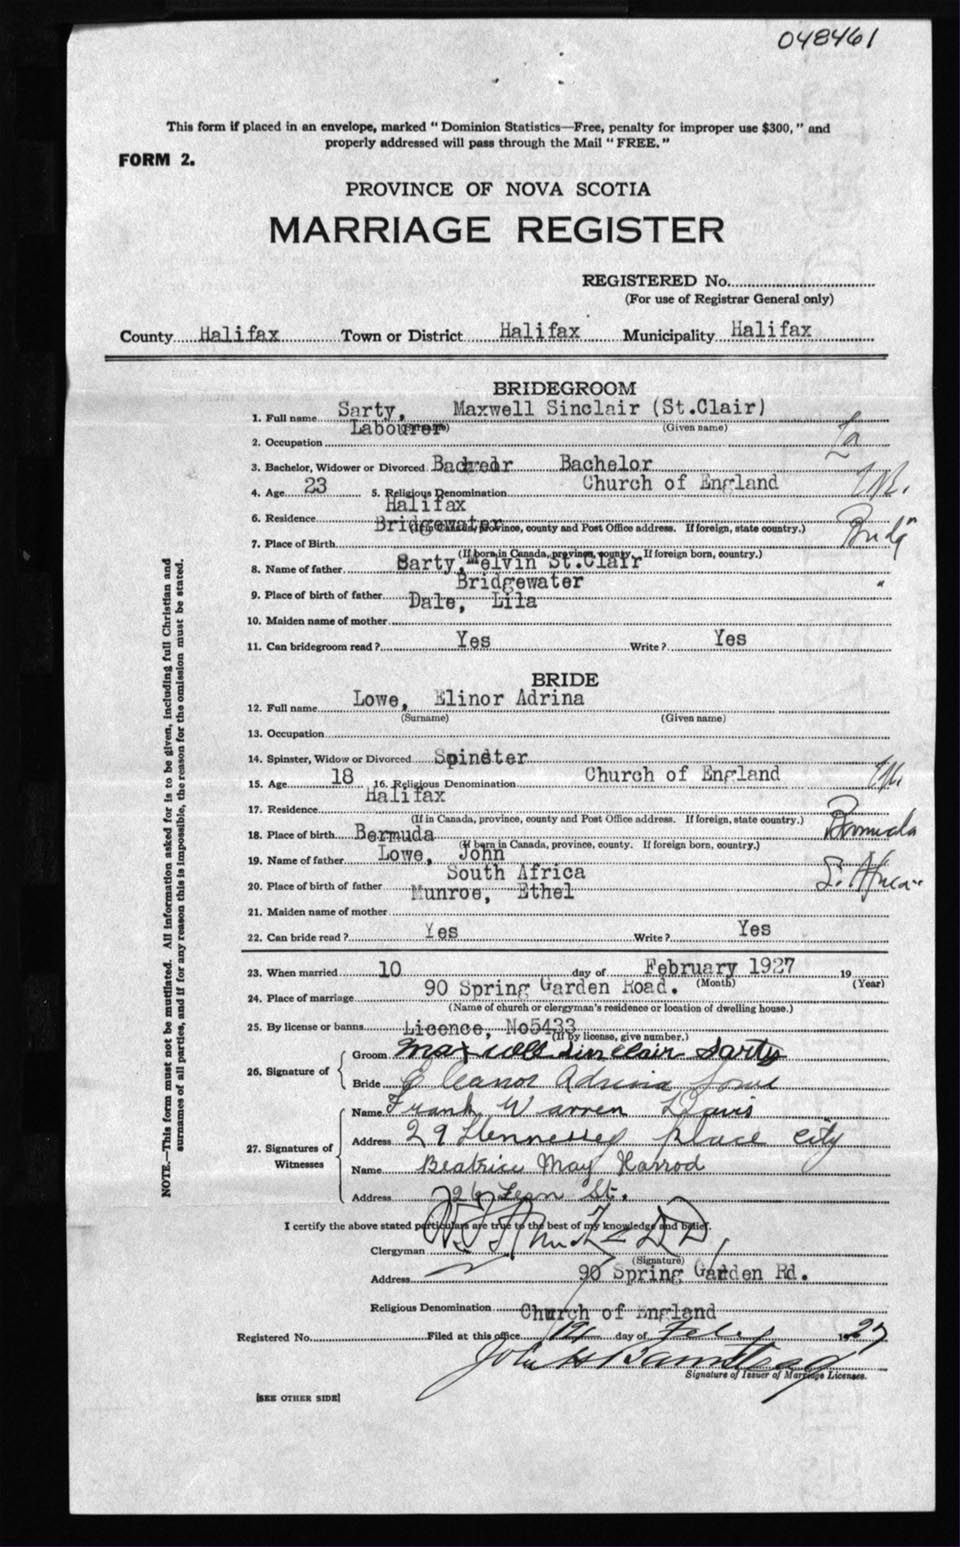 048461
This form if placed in an envelope, marked " Dominion Statistics—Free, penalty for improper use $300, " and
properly addressed will pass through the Mail " FREE. "
FORM 2.
PROVINCE OF NOVA SCOTIA
MARRIAGE REGISTER
REGISTERED No.
(For use of Registrar General only)
County Halifax Town or District Halifax Municipality Halifax
BRIDEGROOM
1. Full name Sarty, Maxwell Sinclair (St.Clair)
(Given name)
2. Occupation Labourer
3. Bachelor, Widower or Divorced Bachelor
4. Age 23 5. Religious Denomination Church of England
6. Residence Halifax
(If in Canada, province, county and Post Office address. If foreign, state country.)
7. Place of Birth Bridgewater
(If born in Canada, province, county. If foreign born, country.)
8. Name of father Sarty, Melvin St.Clair
9. Place of birth of father Bridgewater "
10. Maiden name of mother Dale, Lila
11. Can bridegroom read ? Yes Write ? Yes
BRIDE
12. Full name Lowe, Elinor Adrina
(Surname) (Given name)
13. Occupation
14. Spinster, Widow or Divorced Spinster
15. Age 18 16. Religious Denomination Church of England
17. Residence Halifax
(If in Canada, province, county and Post Office address. If foreign, state country.)
18. Place of birth Bermuda Bermuda
(If born in Canada, province, county. If foreign born, country.)
19. Name of father Lowe, John
20. Place of birth of father South Africa S. Africa
21. Maiden name of mother Munroe, Ethel
22. Can bride read ? Yes Write ? Yes
23. When married 10 day of February 1927 19
(Month) (Year)
24. Place of marriage 90 Spring Garden Road.
(Name of church or clergyman's residence or location of dwelling house.)
25. By license or banns Licence, No5433
(If by license, give number.)
26. Signature of Groom Maxwell Sinclair Sarty
Bride Eleanor Adrina Lowe
27. Signatures of Witnesses Name Frank Warren Davis
Address 29 Hennessey place city
Name Beatrice May Harrod
Address 26 St.
I certify the above stated particulars are true to the best of my knowledge and belief.
Clergyman
(Signature)
Address 90 Spring Garden Rd.
Religious Denomination Church of England
Registered No. Filed at this office day of Feby 1927
John H
Signature of Issuer of Marriage Licenses.
[SEE OTHER SIDE]
NOTE.—This form must not be mutilated. All information asked for is to be given, including full Christian and
surnames of all parties, and if for any reason this is impossible, the reason for the omission must be stated.